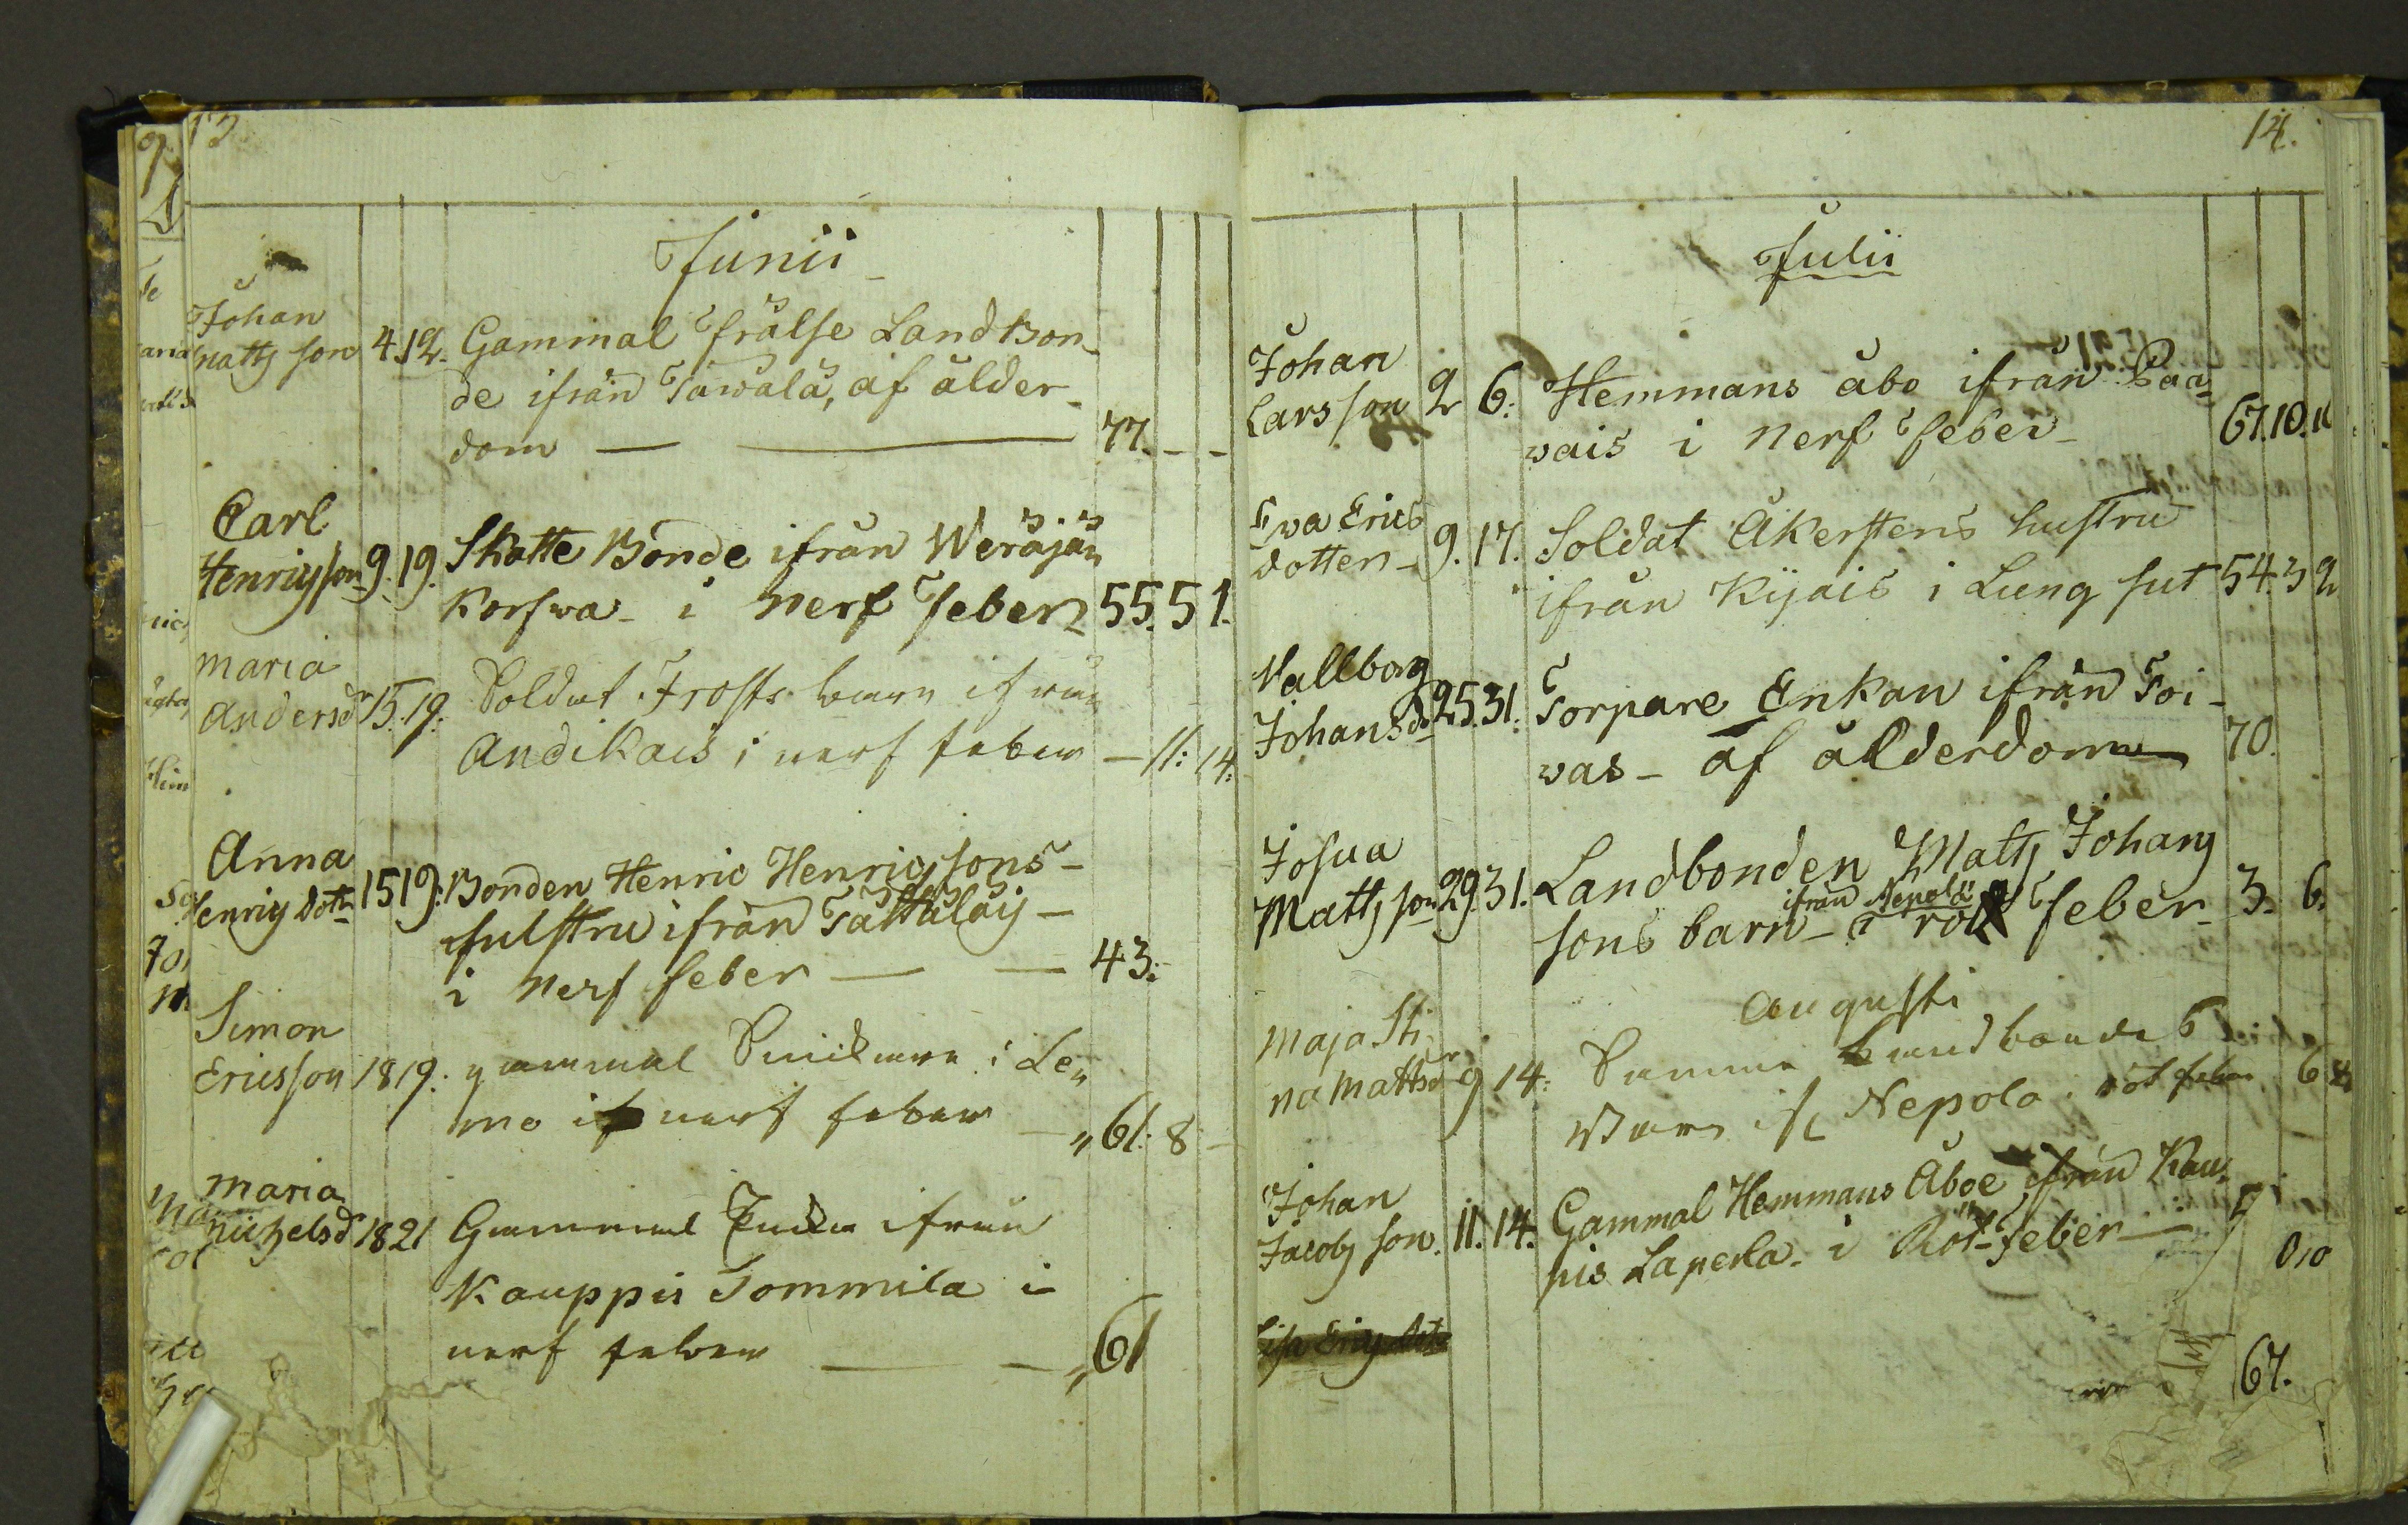 13
Junii
Johan
Matts son 4 12. Gammal frälse Land Bon-
de ifrån Tawala, af ålder-
dom — — 77. - -
Carl
Henricsson 9. 19. Skatte Bonde ifrån Weräjän
Korswa - i Nerf feber 55. 5 1.
Maria
Andersdr 15. 19. Soldat Frosts barn ifrån
Andikais i nerf feber — 11: 14:
Anna
Henrics dotr 15 19: Bonden Henric Henricssons -
hustru ifrån
i Nerf feber — — 43:
Simon
Ericsson 18 19. gammal i Le-
mo i nerf feber — „ 61: 8 -
Maria
Michelsd 18 21 Gammal Encka ifrån
Kauppis Tommila i
nerf feber — — „ 61
14.
Julii
Johan
Larsson 2 6: Hemmans åbo ifrån Paa-
wais i Nerf feber - 67. 10.
Ewa Erics
dotter - 9. 17. Soldat Åkerstens hustru
ifrån Kijais i Lung sut 54. 3 2
Wallborg
Johansdr 25. 31. Torpare Enkan ifrån Toi-
was - af ålderdom 70.
Josua
Mattsson 29. 31. Landbonden Matts Johans
ifrån Nepola
sons barn - i röt feber - 3. 6.
Augusti
Maja Sti
na Mattsdr 9 14: Samma Landbonde
Barn Nepola. röt feber 6
Johan
Jacobs son. 11. 14. Gammal Hemmans Åboe ifrån Kau-
pis Laperla. i Röt feber —
67.